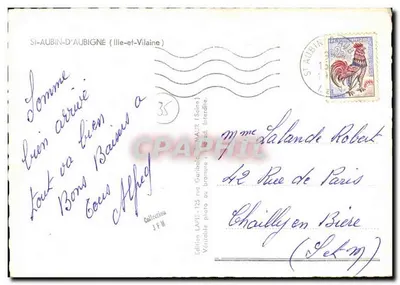 St-AUBIN-D'AUBIGNE (Ille-et-Vilaine)
Somme
bien arrivé
tout va bien
Bons Baisers a
tous Alfred
35
Collection
Mme Lalande Robert
42 Rue de Paris
Chailly en Bière
(S et M)
St AUBIN
CPAPHIL